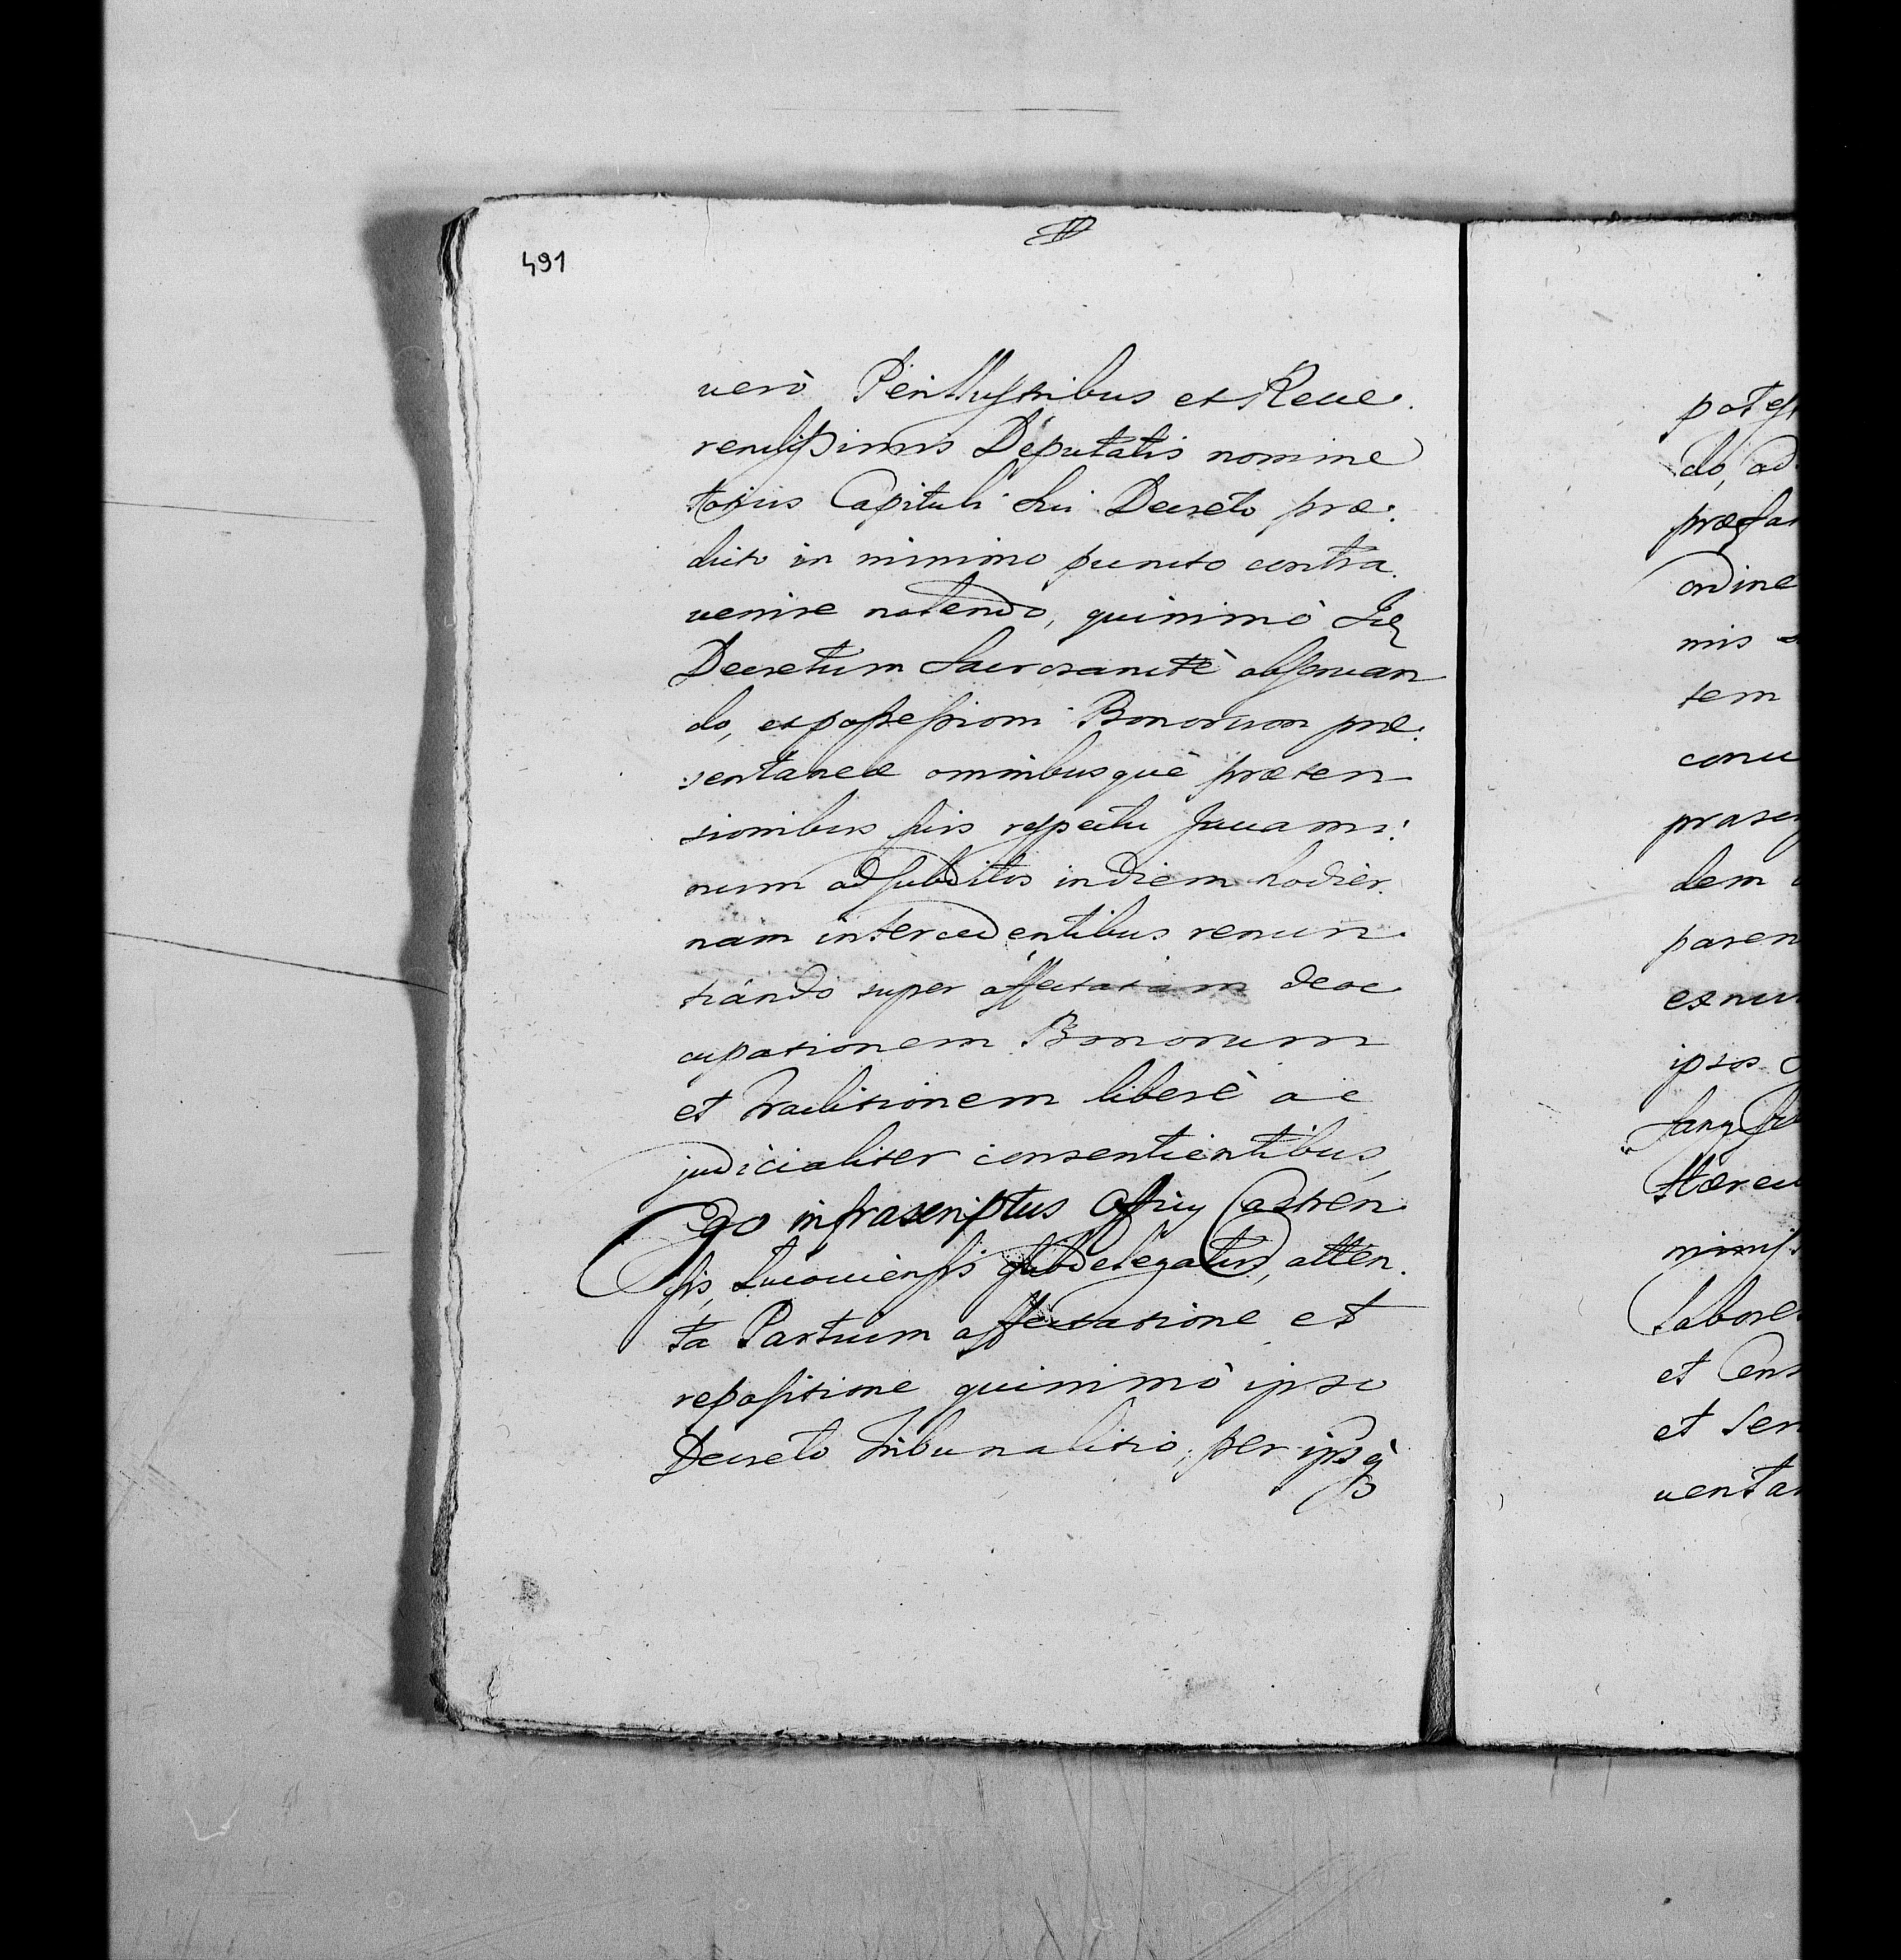 491
vero Perillustribus et Reve.
rendissimis Deputatis nomine
totius Capituli sui Decreto præ.
dicto in minimo puncto contra.
venire nolendo, quinimò
Decretum Sacrosanctè observan
do, et possessioni Bonorum præ.
sentaneæ omnibusquè præten
sionibus suis respectu
num ad subditos in diem hodier.
nam intercedentibus renun.
tiando super affectatam deoc
cupationem Bonorum
et traditionem liberè ac
judicialiter consentientibus,
Ego infrascriptus Officij Castren
sis, Lucoviensis subdelegatus, atten.
ta Partium affectatione et
repositione quinimò ipso
Decreto tribunalitio, per
potest
do, ad
præfa
ordine
mis
tem
conu
præse
dem
paren
exnu
ipsos
et Cen
et Ser
uenta